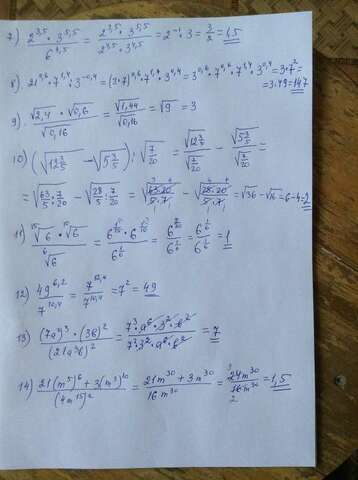 7) 2^3,5 · 3^5,5 / 6^4,5 = 2^3,5 · 3^5,5 / 2^4,5 · 3^4,5 = 2^-1 · 3 = 3/2 = 1,5
8) 21^0,6 · 7^1,4 · 3^0,4 = (3·7)^0,6 · 7^1,4 · 3^0,4 = 3^0,6 · 7^0,6 · 7^1,4 · 3^0,4 = 3·7^2 =
= 3·49 = 147
9) √2,4 · √0,6 / √0,16 = √1,44 / √0,16 = √9 = 3
10) (√12 3/5 − √5 3/5) : √7/20 = √12 3/5 / √7/20 − √5 3/5 / √7/20 =
= √63/5 : 7/20 − √28/5 : 7/20 = √63·20/5·7 − √28·20/5·7 = √36 − √16 = 6−4 = 2
11) ¹⁵√6 · ¹⁰√6 / ⁶√6 = 6^1/15 · 6^1/10 / 6^1/6 = 6^1/6 / 6^1/6 = 1
12) 49^6,2 / 7^10,4 = 7^12,4 / 7^10,4 = 7^2 = 49
13) (7a^2)^3 · (3b)^2 / (21a^3b)^2 = 7^3 · a^6 · 3^2 · b^2 / 7^2 · 3^2 · a^6 · b^2 = 7
14) 21(m^5)^6 + 3(m^3)^10 / (4m^15)^2 = 21m^30 + 3m^30 / 16m^30 = 24m^30 / 16m^30 = 1,5